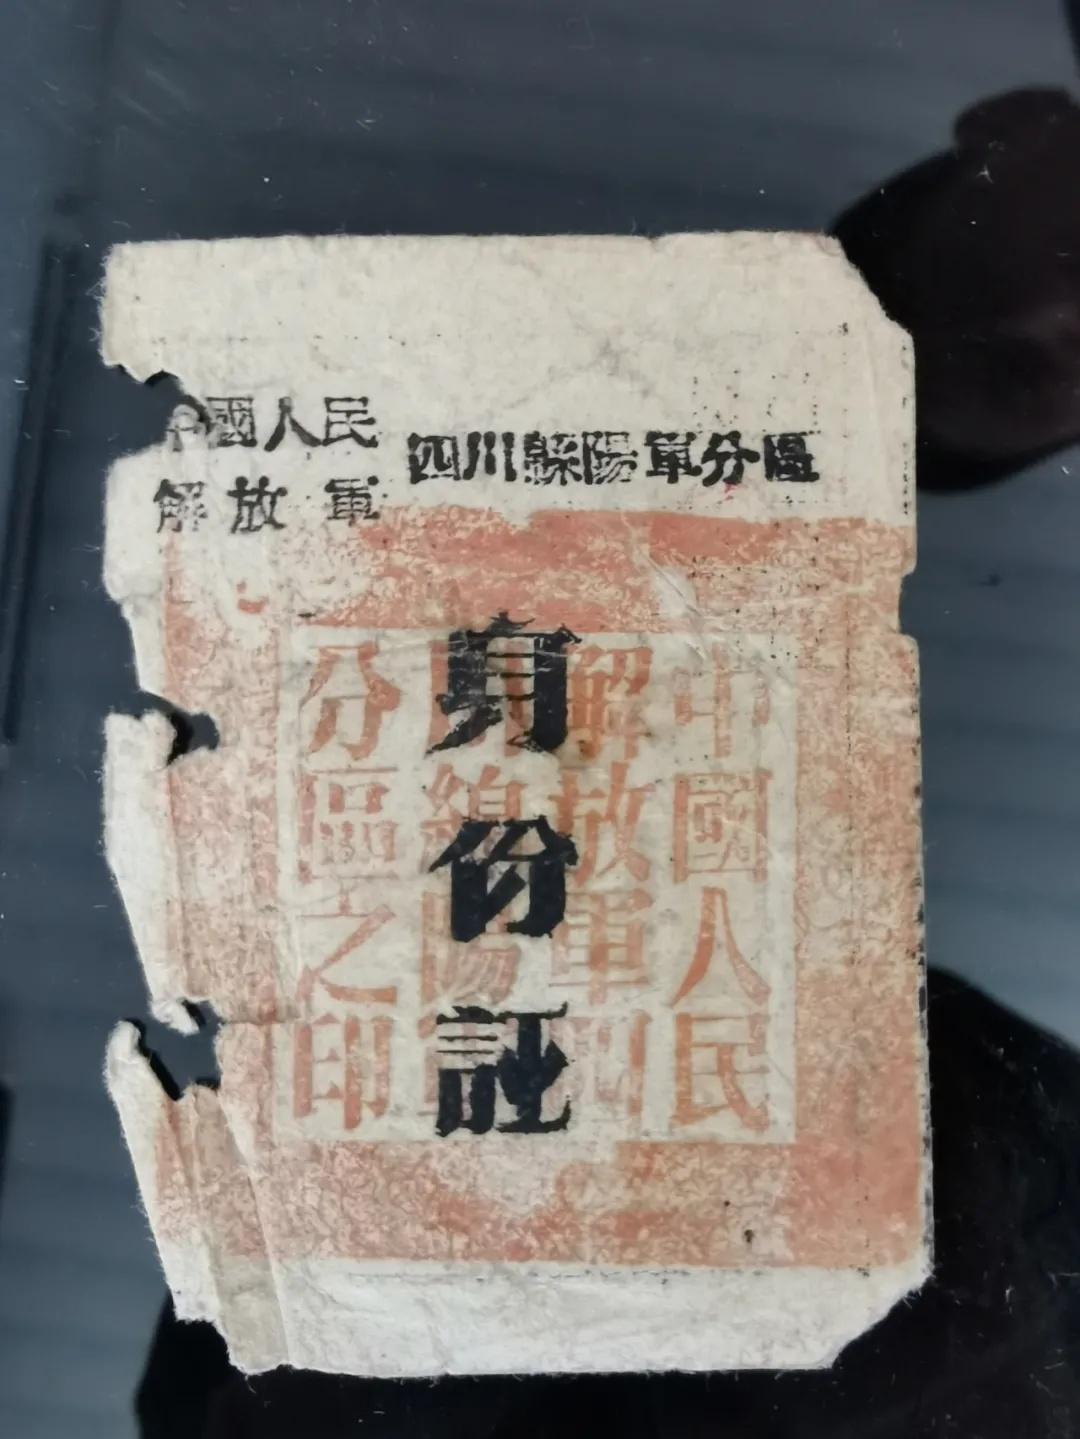 中國人民
解放軍
四川緜陽軍分區
身份証
中國人民
解放軍四
川綿陽軍
分區之印